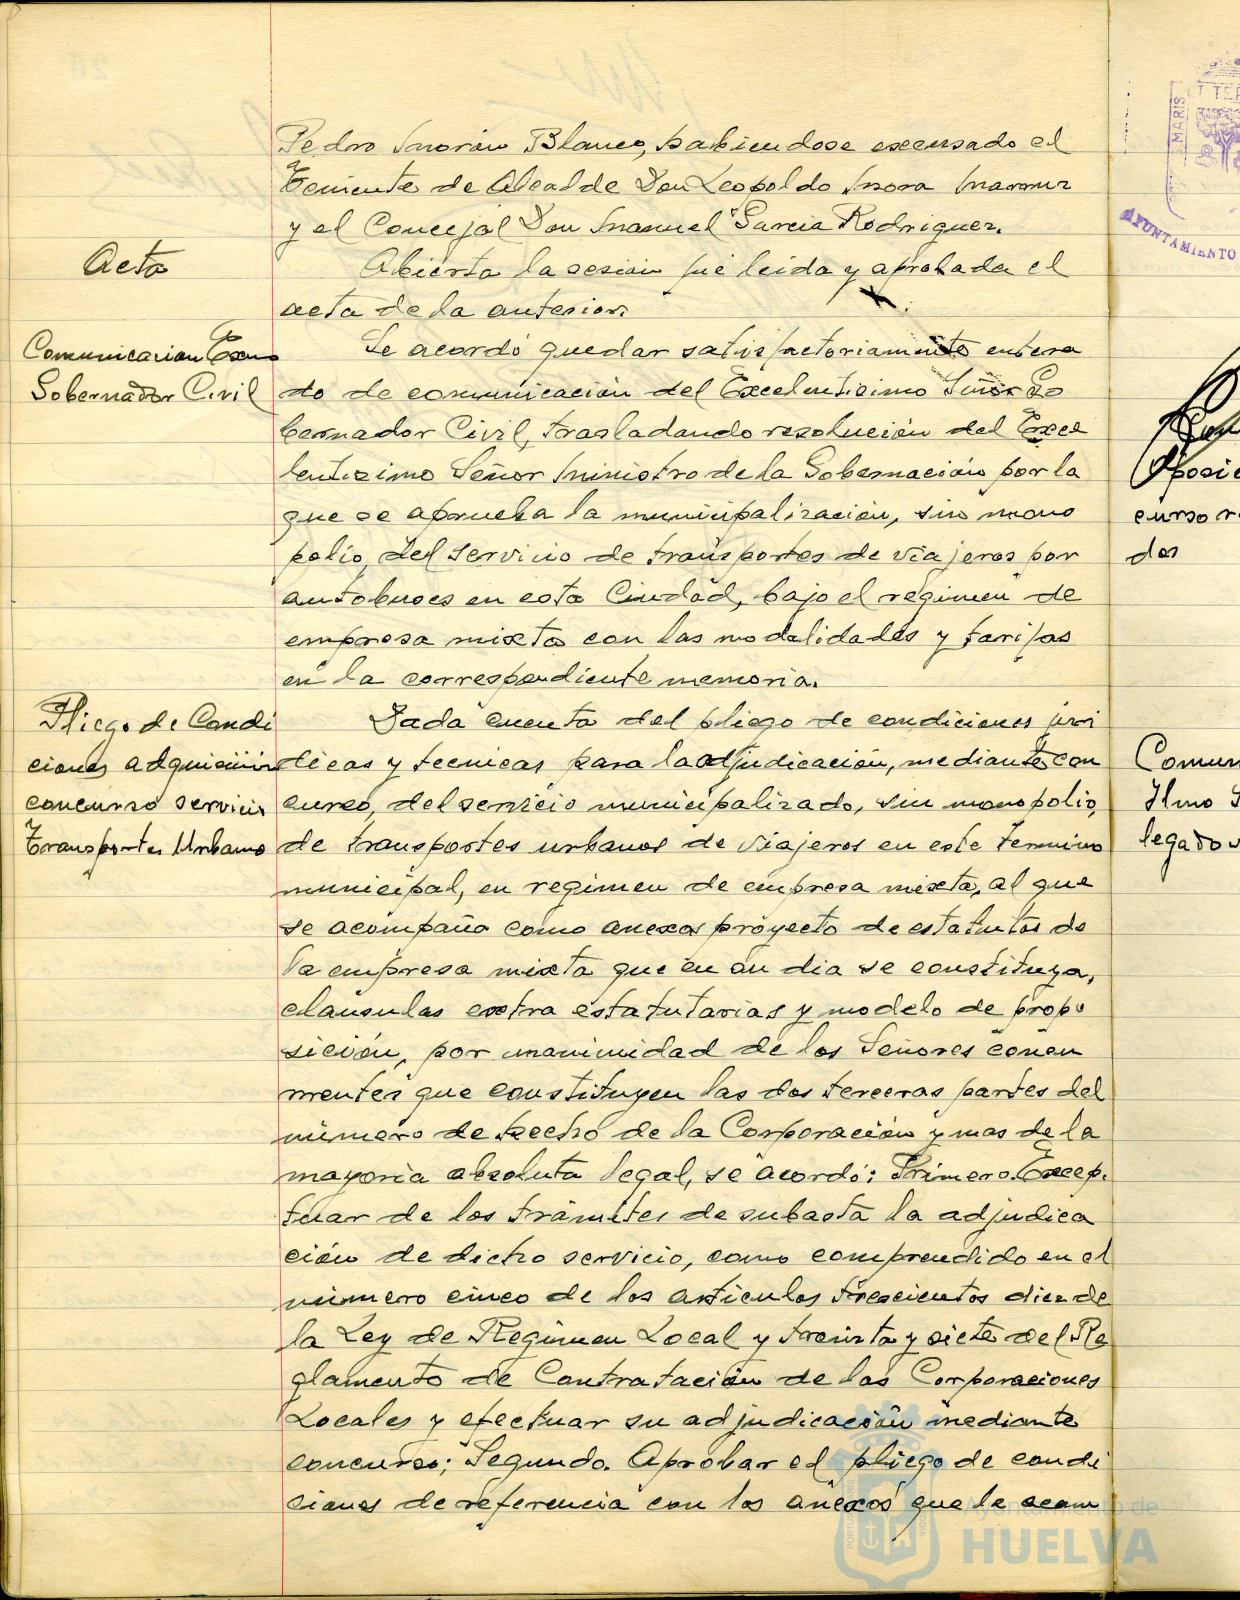 Pedro Morón Blanco, habiendose excusado el
Teniente de Alcalde Don Leopoldo Mora
y el Concejal Don Manuel Garcia Rodriguez.
Acta
Abierta la sesión fué leida y aprobada el
acta de la anterior.
Comunicacion Excmo
Gobernador Civil
Se acordó quedar satisfactoriamente entera
do de comunicación del Excelentisimo Señor Go
bernador Civil, trasladando resolución del Exce
lentisimo Señor Ministro de la Gobernación por la
que se aprueba la municipalización, sin mono
polio, del servicio de transportes de viajeros por
autobuses en esta Ciudad, bajo el regimen de
empresa mixta con las modalidades y tarifas
en la correspondiente memoria.
Pliego de Condi
ciones adquisición
concurso servicio
Transportes Urbano
Dada cuenta del pliego de condiciones juri
dicas y tecnicas para la adjudicación, mediante con
curso, del servicio municipalizado, sin monopolio,
de transportes urbanos de viajeros en este termino
municipal, en regimen de empresa mixta, al que
se acompaña como anexos proyecto de estatutos de
la empresa mixta que en su dia se constituya,
clausulas extra estatutarias y modelo de propo
sición, por unanimidad de los Señores concu
rrentes que constituyen las dos terceras partes del
número de hecho de la Corporación y mas de la
mayoria absoluta legal, se acordó: Primero. Excep.
tuar de los trámites de subasta la adjudica
ción de dicho servicio, como comprendido en el
número cinco de los articulos trescientos diez de
la Ley de Regimen Local y treinta y siete del Re
glamento de Contratación de las Corporaciones
Locales y efectuar su adjudicación mediante
concurso; Segundo. Aprobar el pliego de condi
ciones de referencia con los anexos que le acom
MARIS
AYUNTAMIENTO
curso r
dos
Comun
Ilmo S
legado
Ayuntamiento de
HUELVA